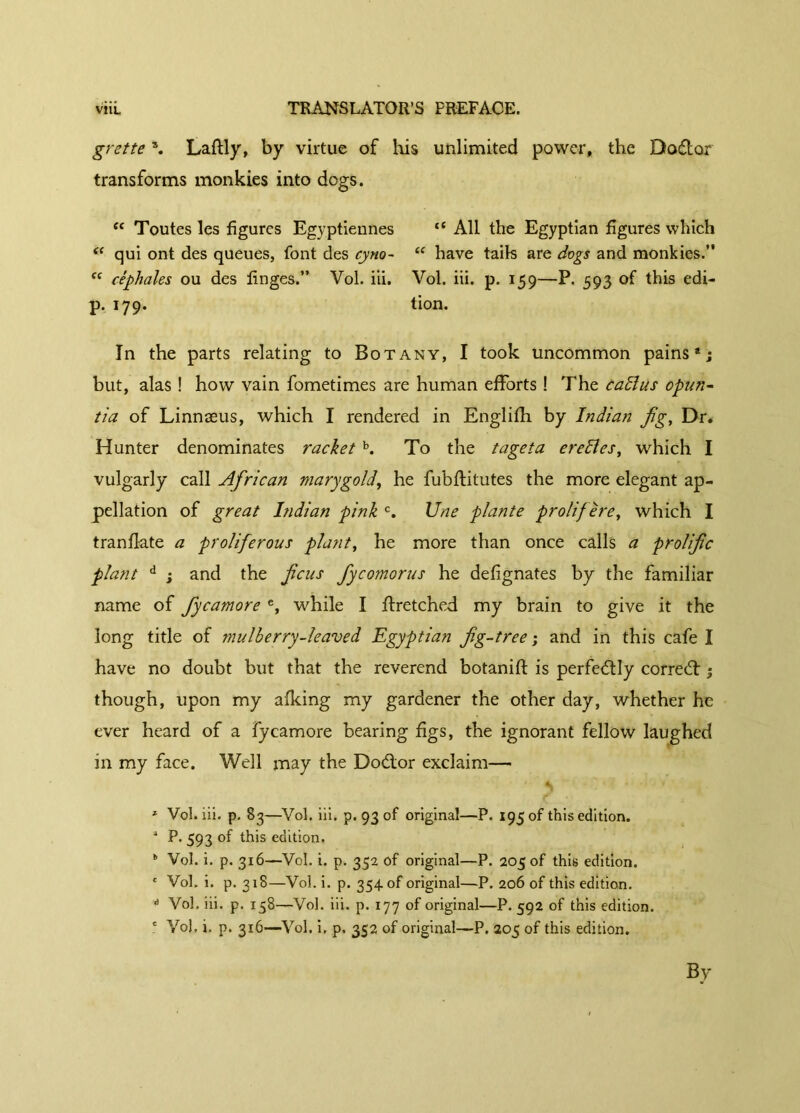 viii TRANSLATOR'S PREFACE.
grette ᶻ. Laſtly, by virtue of his unlimited power, the Doctor
transforms monkies into dogs.
“ Toutes les figures Egyptiennes
“ qui ont des queues, font des cyno-
“ céphales ou des ſinges.” Vol. iii.
p. 179.
“ All the Egyptian figures which
“ have tails are dogs and monkies.”
Vol. iii. p. 159—P. 593 of this edi-
tion.
In the parts relating to BOTANY, I took uncommon pains ᵃ;
but, alas ! how vain ſometimes are human efforts ! The cactus opun-
tia of Linnæus, which I rendered in Engliſh by Indian fig, Dr.
Hunter denominates racket ᵇ. To the tageta erectes, which I
vulgarly call African marygold, he ſubſtitutes the more elegant ap-
pellation of great Indian pink ᶜ. Une plante prolifère, which I
tranſlate a proliferous plant, he more than once calls a prolific
plant ᵈ ; and the ficus ſycomorus he deſignates by the familiar
name of ſycamore ᵉ, while I ſtretched my brain to give it the
long title of mulberry-leaved Egyptian fig-tree; and in this caſe I
have no doubt but that the reverend botaniſt is perfectly correct ;
though, upon my aſking my gardener the other day, whether he
ever heard of a ſycamore bearing figs, the ignorant fellow laughed
in my face. Well may the Doctor exclaim—
ᶻ Vol. iii. p. 83—Vol. iii. p. 93 of original—P. 195 of this edition.
ᵃ P. 593 of this edition.
ᵇ Vol. i. p. 316—Vol. i. p. 352 of original—P. 205 of this edition.
ᶜ Vol. i. p. 318—Vol. i. p. 354 of original—P. 206 of this edition.
ᵈ Vol. iii. p. 158—Vol. iii. p. 177 of original—P. 592 of this edition.
ᵉ Vol. i. p. 316—Vol. i. p. 352 of original—P. 205 of this edition.
By